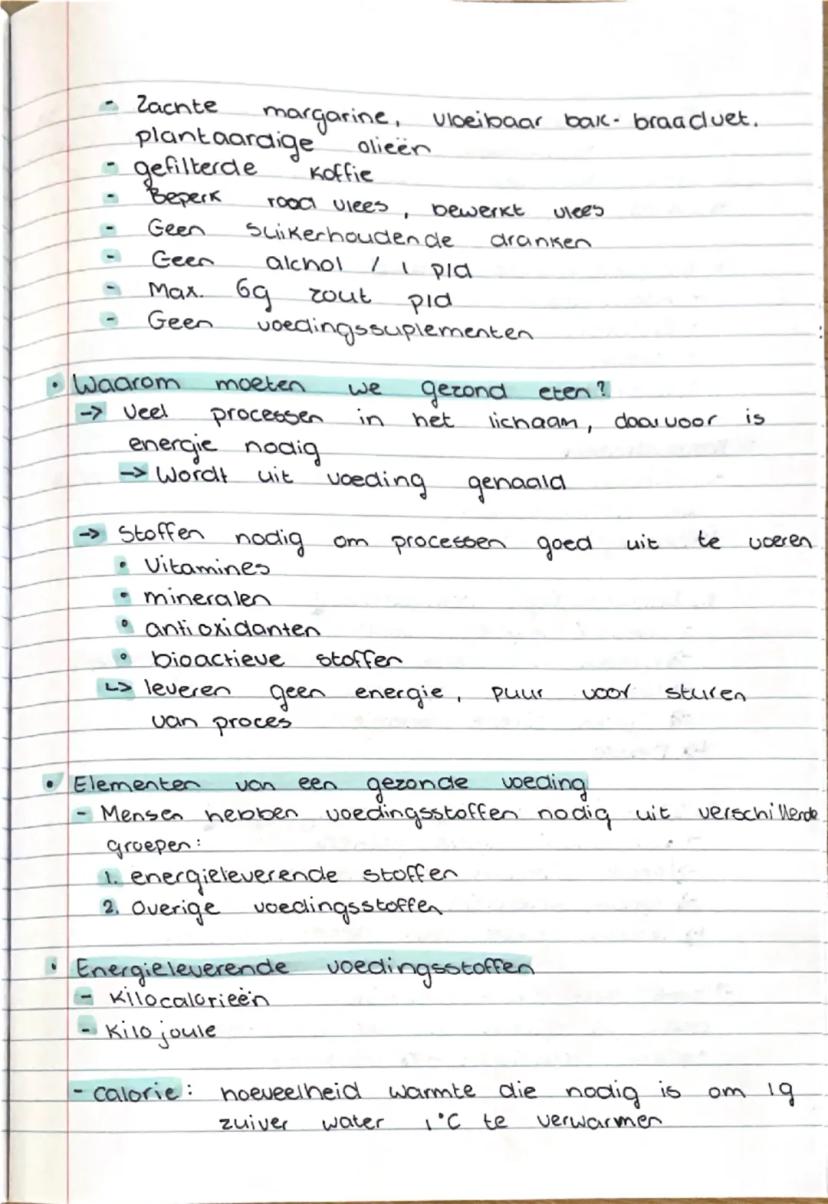 - Zachte margarine, vloeibaar bak- braadvet.
plantaardige olieën
- gefilterde koffie
- Beperk rood vlees, bewerkt vlees
- Geen suikerhoudende dranken
- Geen alchol / 1 p/d
- Max. 6g zout p/d
- Geen voedingssuplementen
• Waarom moeten we gezond eten?
→ Veel processen in het lichaam, daarvoor is
energie nodig
→ Wordt uit voeding gehaald
→ Stoffen nodig om processen goed uit te voeren
• Vitamines
• mineralen
• antioxidanten
• bioactieve stoffen
↳ leveren geen energie, puur voor sturen
van proces
• Elementen van een gezonde voeding
- Mensen hebben voedingsstoffen nodig uit verschillende
groepen:
1. energieleverende stoffen
2. Overige voedingsstoffen
• Energieleverende voedingsstoffen
- Kilocalorieën
- Kilojoule
- calorie: hoeveelheid warmte die nodig is om 1g
zuiver water 1°C te verwarmen